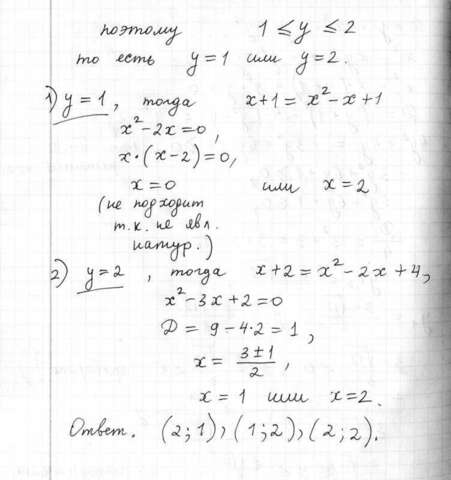 поэтому 1 ≤ y ≤ 2
то есть y=1 или y=2.
1) y=1, тогда x+1 = x²-x+1
x²-2x=0,
x·(x-2)=0,
x=0 или x=2
(не подходит
т.к. не явл.
натур.)
2) y=2, тогда x+2=x²-2x+4,
x²-3x+2=0
Д = 9-4·2=1,
x = (3±1)/2,
x=1 или x=2.
Ответ. (2;1), (1;2), (2;2).